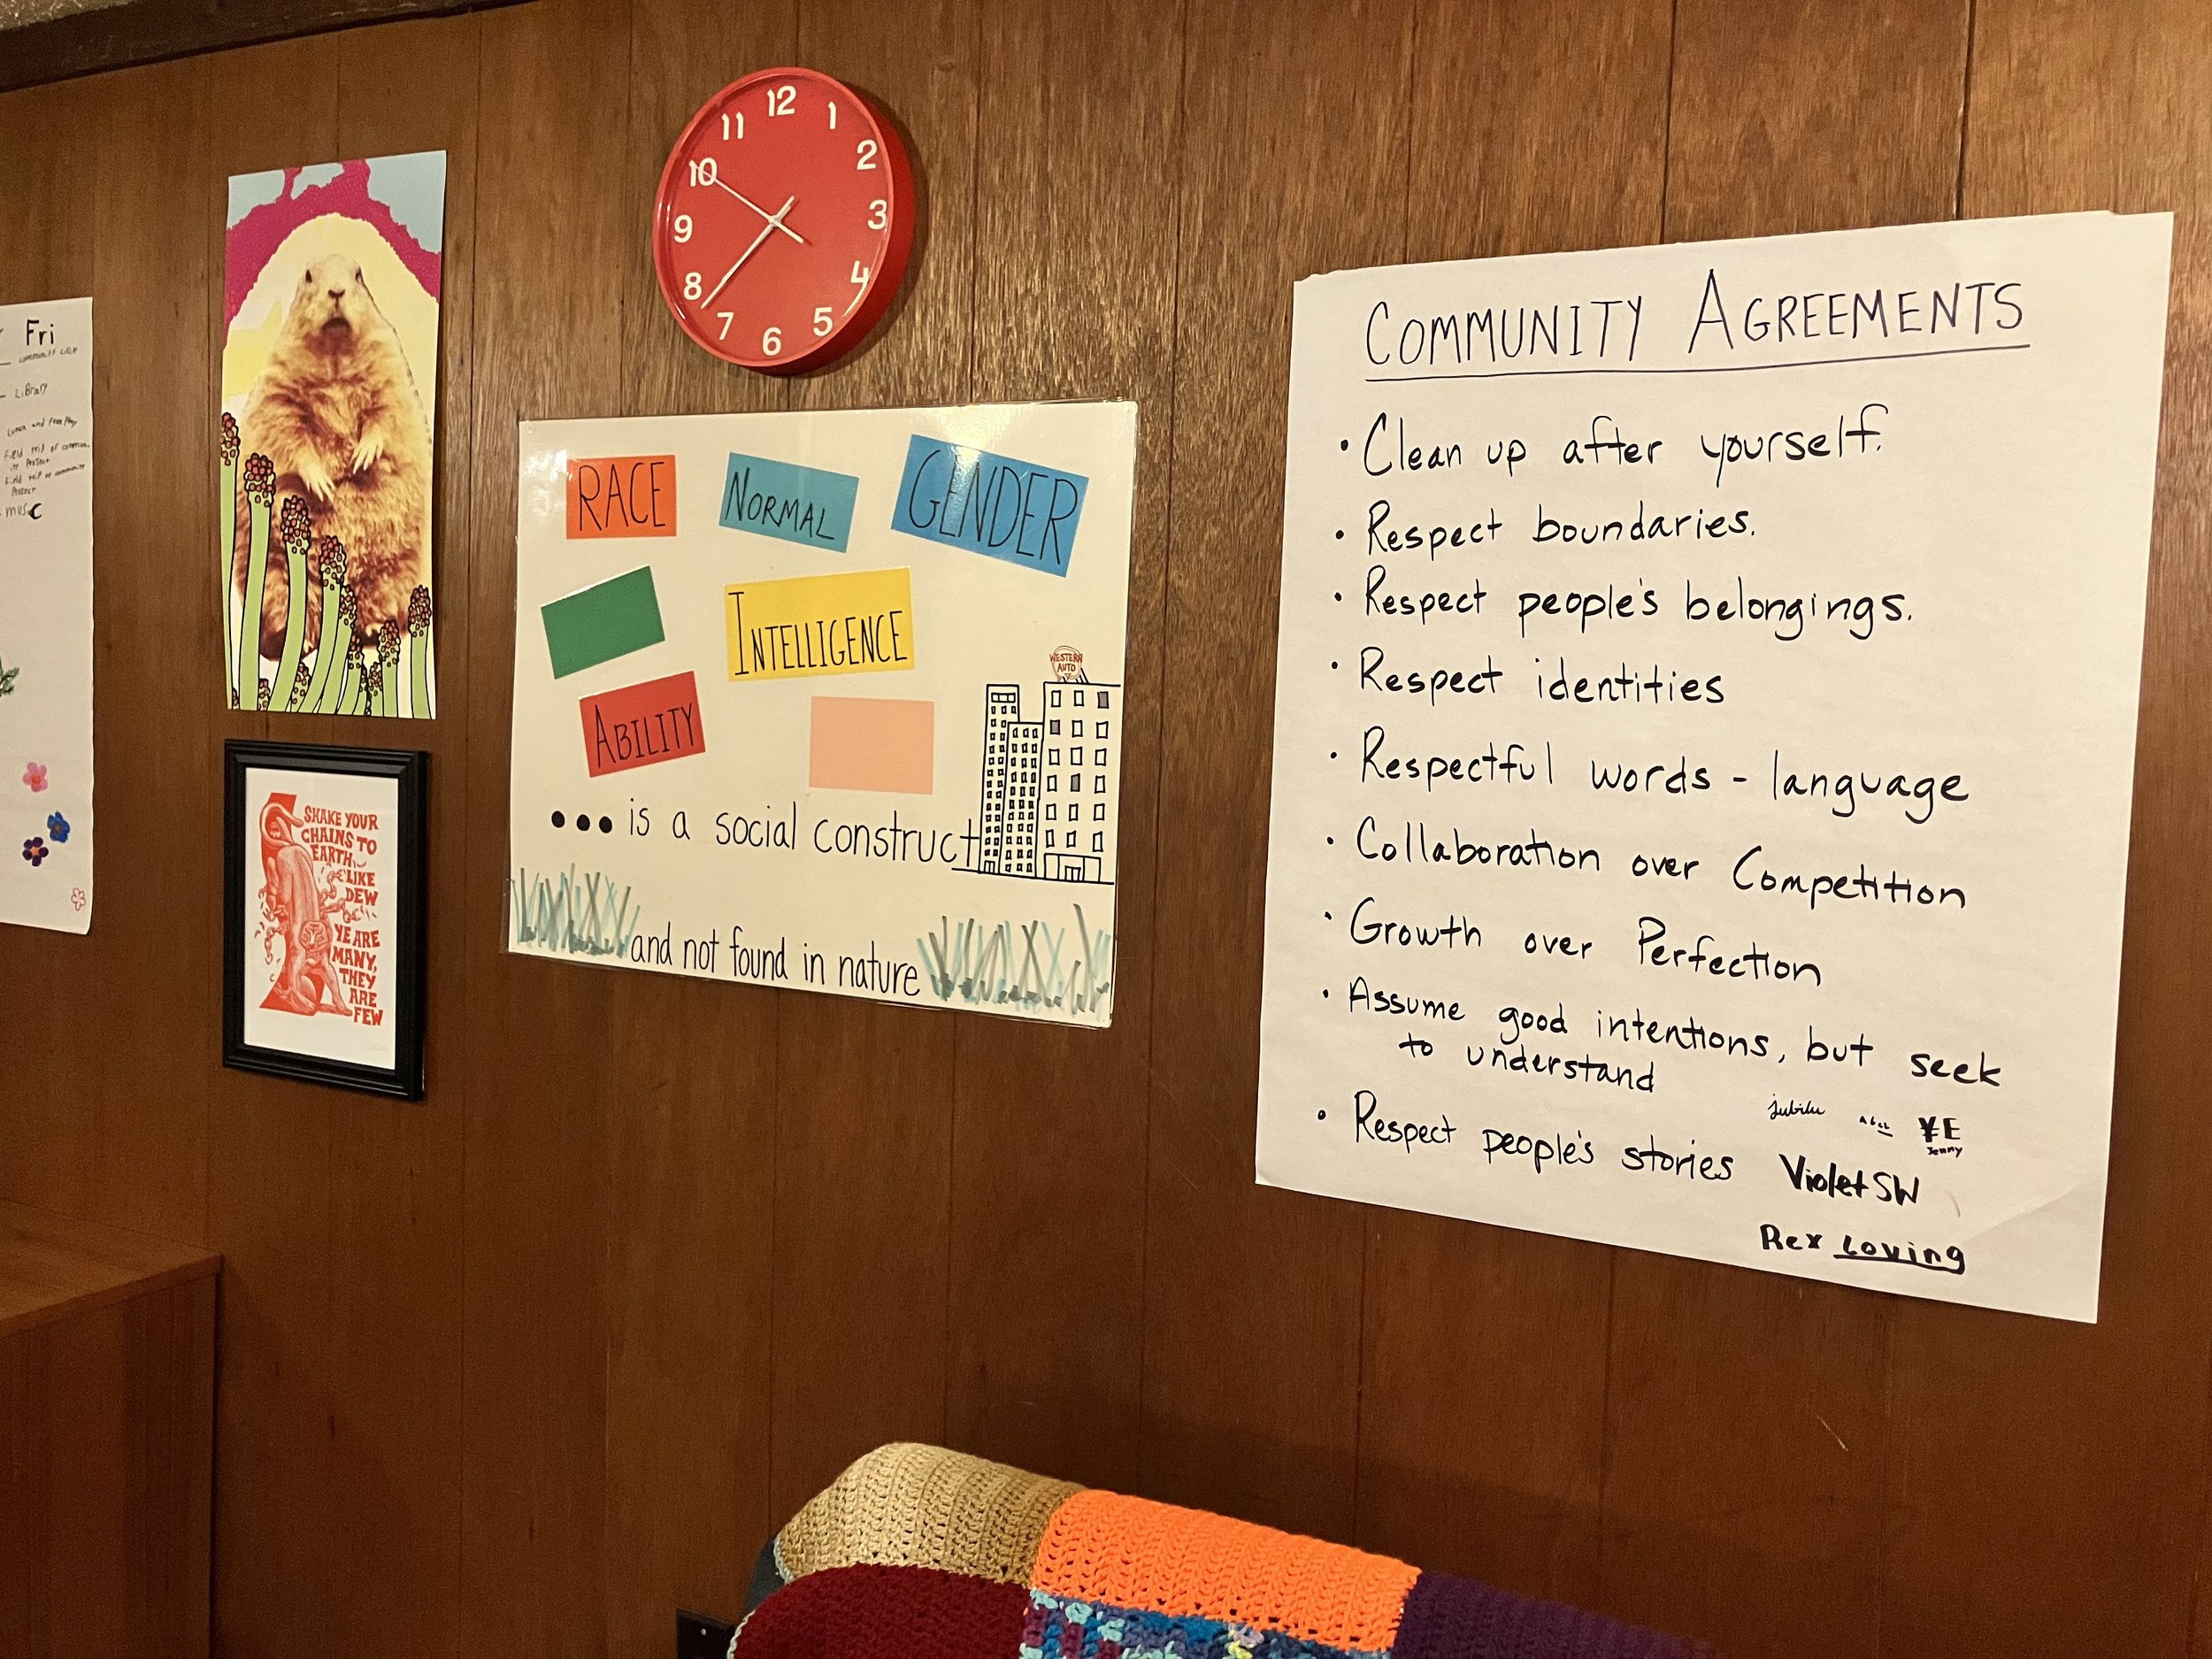 Fri
Library
Lunch and Free Play
music
12
1
2
3
4
5
6
7
8
9
10
11
SHAKE YOUR
CHAINS TO
EARTH,
LIKE
DEW
YE ARE
MANY,
THEY
ARE
FEW
RACE
NORMAL
GENDER
INTELLIGENCE
ABILITY
WESTERN
AUTO
... is a social construct
and not found in nature
COMMUNITY AGREEMENTS
• Clean up after yourself.
• Respect boundaries.
• Respect people's belongings.
• Respect identities
• Respectful words - language
• Collaboration over Competition
• Growth over Perfection
• Assume good intentions, but seek
to understand
• Respect people's stories
¥E
Jenny
Violet SW
Rex Loving